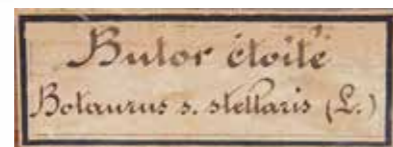 Butor étoilé
Botaurus s. stellaris (L.)